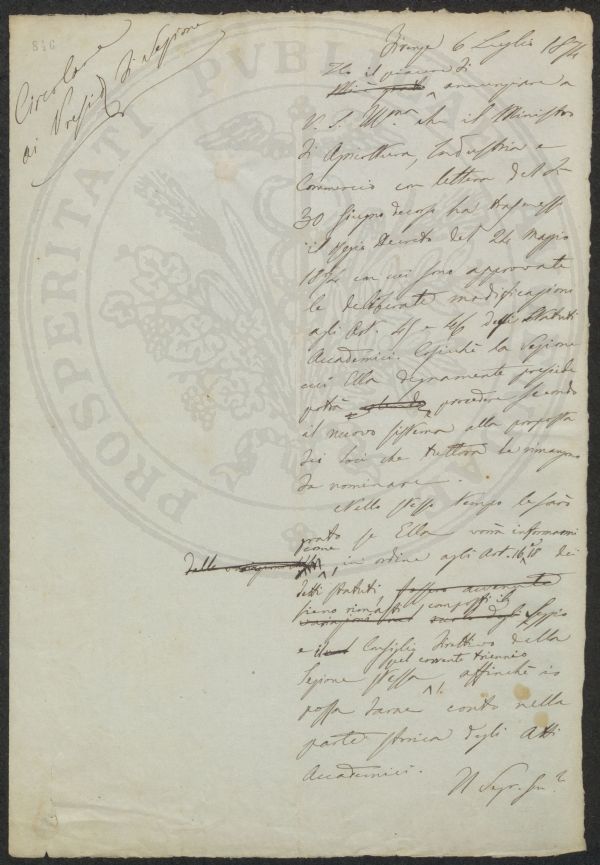 816
Circolare
ai Presidi di Sezione
Firenze 6 Luglio 1874
Ho il piacere di
annunziare a
V. S. Ill.ma che il Ministro
di Agricoltura, Industria e
Commercio con lettera del dì
30 Giugno decorso ha trasmesso
il Regio Decreto del 24 Maggio
1874 con cui sono approvate
le deliberate modificazioni
agli Art. 45 e 46 degli Statuti
Accademici. Cosicchè la Sezione
cui Ella degnamente presiede
potrà procedere secondo
il nuovo sistema alla proposta
dei Soci che tuttora le rimangono
da nominare.
Nello stesso tempo le sarò
grato se Ella vorrà informarmi
come in ordine agli Art. 16 e 18 dei
detti Statuti
siano rimasti composti il Seggio
e il Consiglio Direttivo della
Sezione stessa pel corrente triennio, affinchè io
possa darne conto nella
parte storica degli Atti
Accademici.
Il Segr.
PROSPERITATI PUBLICAE